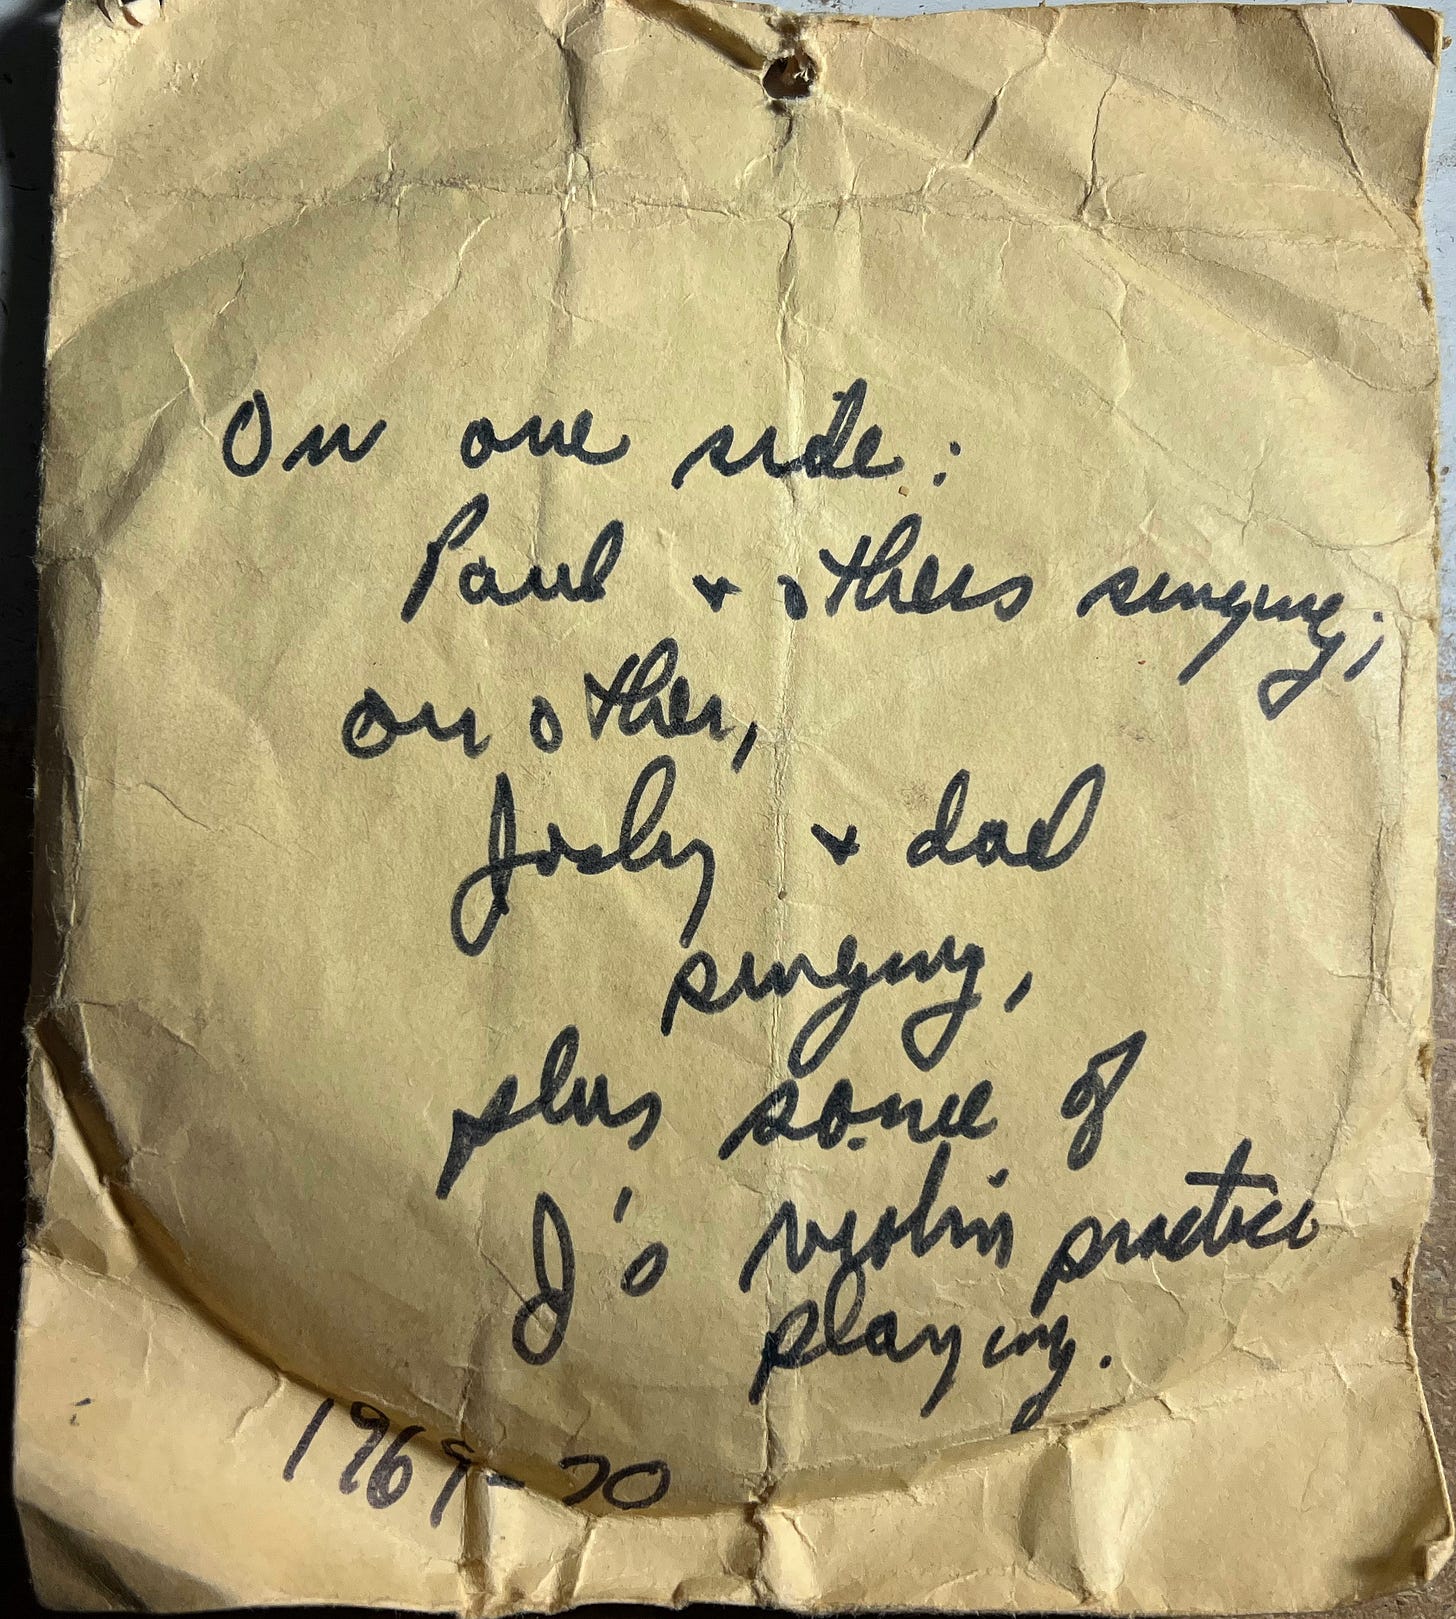 On one side:
Paul + others singing;
on other,
Joshy + dad
singing,
plus some of
J's violin practice
playing.
1969-70